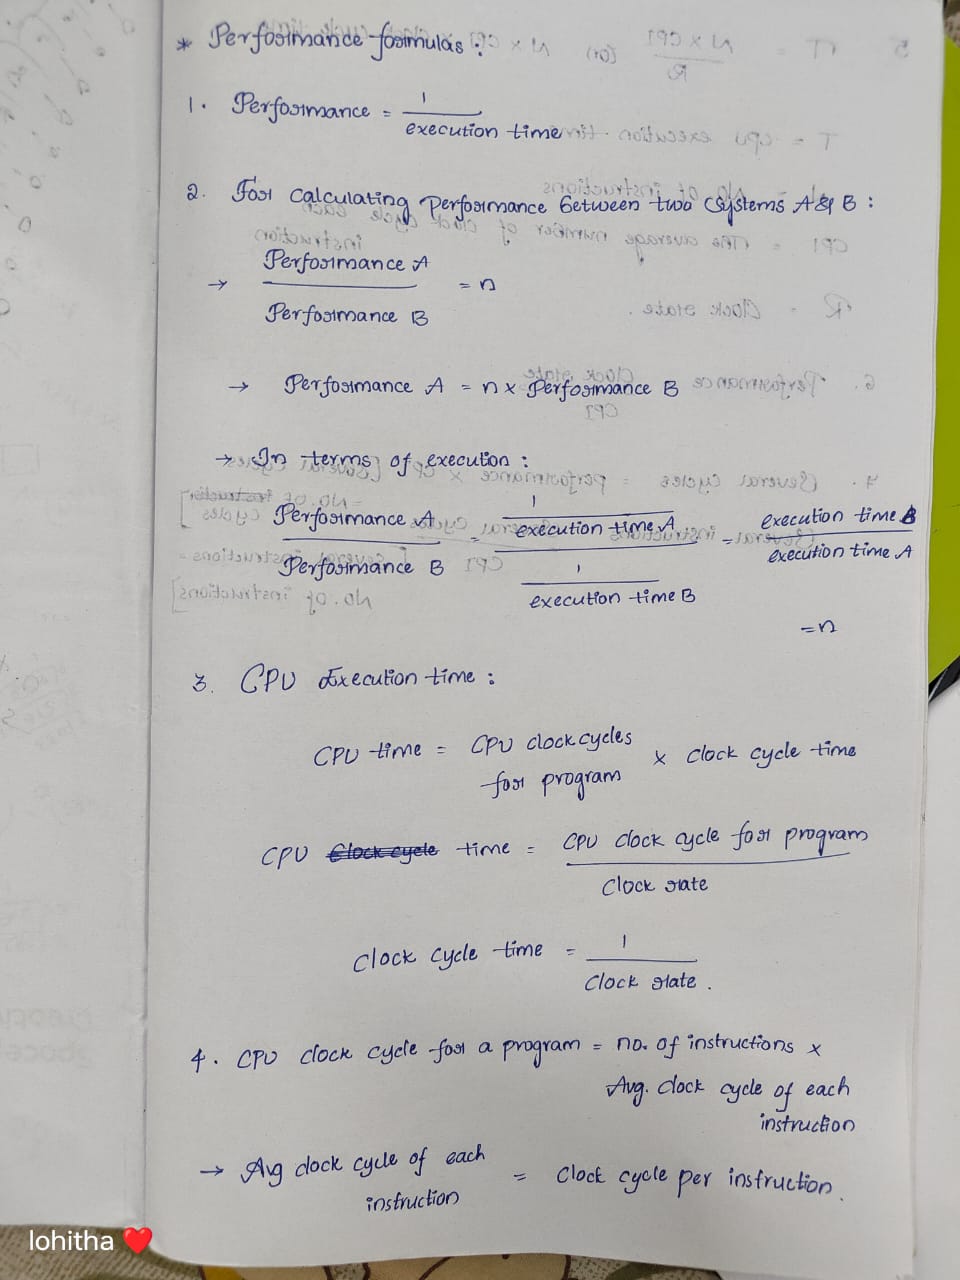 * Performance formulas :
1. Performance = 1 / execution time
2. For Calculating Performance between two Systems A & B :
→ Performance A / Performance B = n
→ Performance A = n x Performance B
→ In terms of execution :
Performance A / Performance B = 1 / execution time A / 1 / execution time B = execution time B / execution time A
= n
3. CPU Execution time :
CPU time = CPU clock cycles for program x clock cycle time
CPU clock cycle time = CPU clock cycle for program / Clock rate
Clock cycle time = 1 / Clock rate .
4. CPU clock cycle for a program = no. of instructions x
Avg. clock cycle of each
instruction
→ Avg clock cycle of each instruction = Clock cycle per instruction.
lohitha ❤️